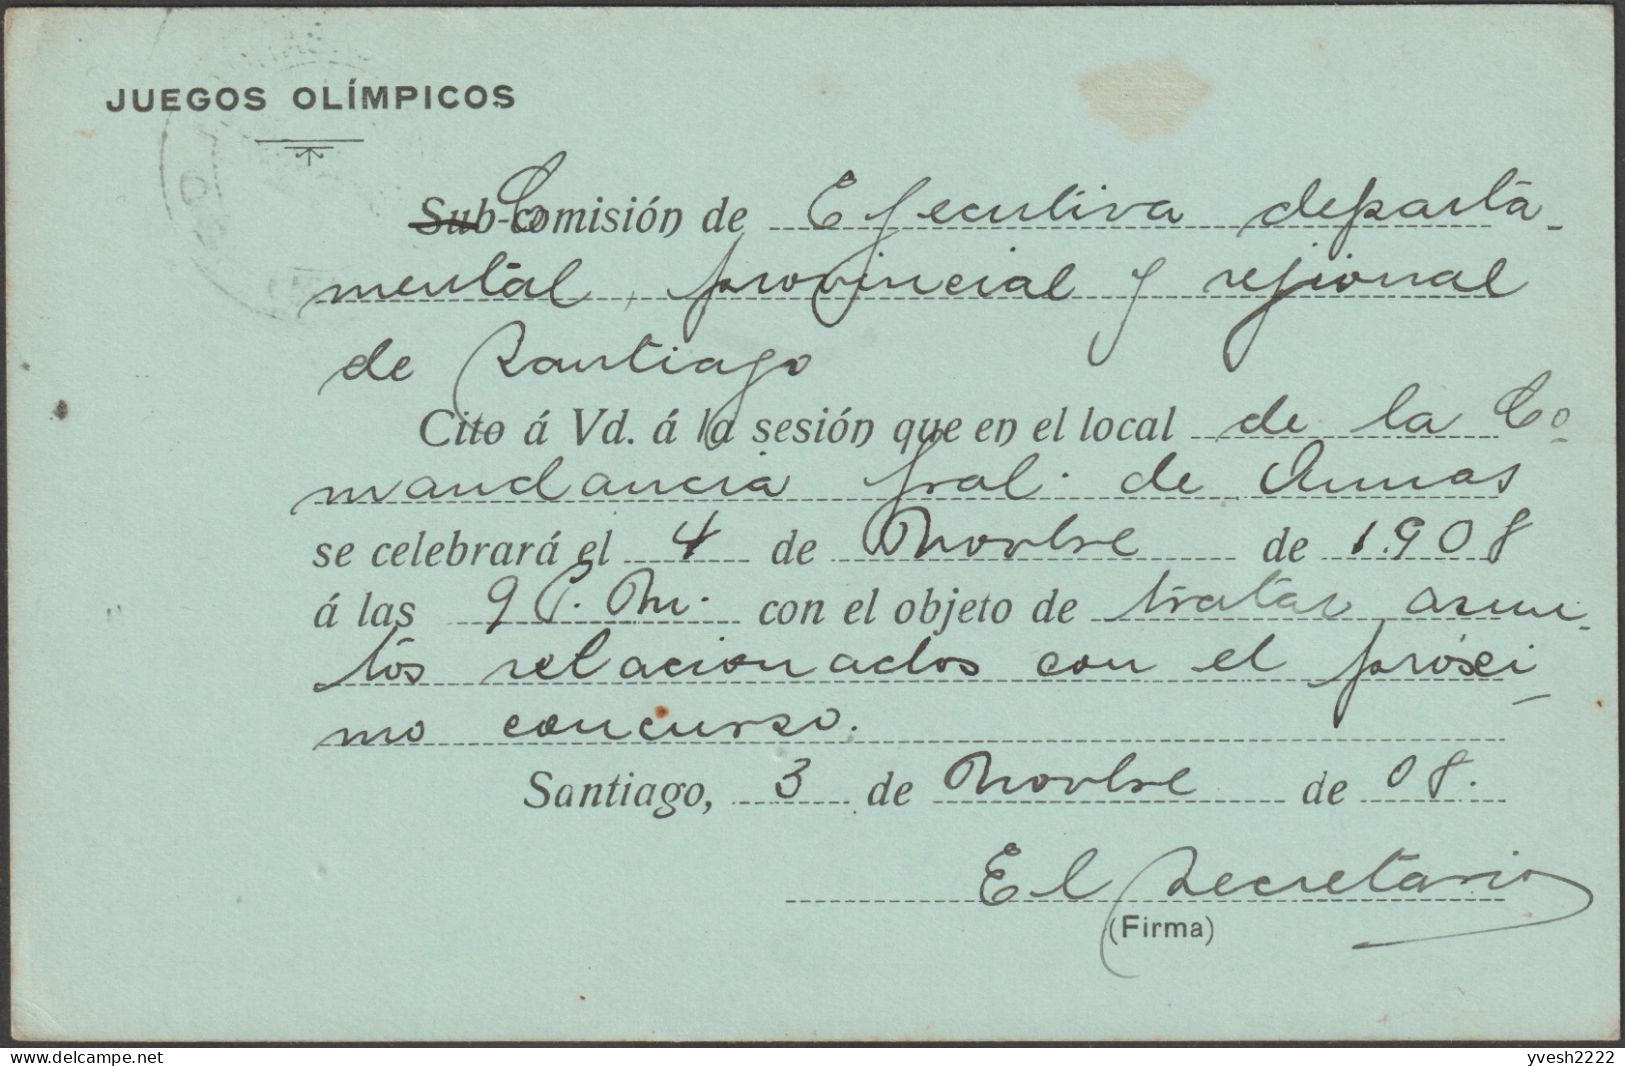 JUEGOS OLÍMPICOS
Sub-Comisión de Ejecutiva departa-
mental, provincial y rejional
de Santiago
Cito á Vd. á la sesión que en el local de la Co-
mandancia Jral. de Armas
se celebrará el 4 de Novbre de 1908
á las 9 P.M. con el objeto de tratar asun-
tos relacionados con el prósci-
mo concurso.
Santiago, 3 de Novbre de 08.
El Secretario
(Firma)
yvesh2222